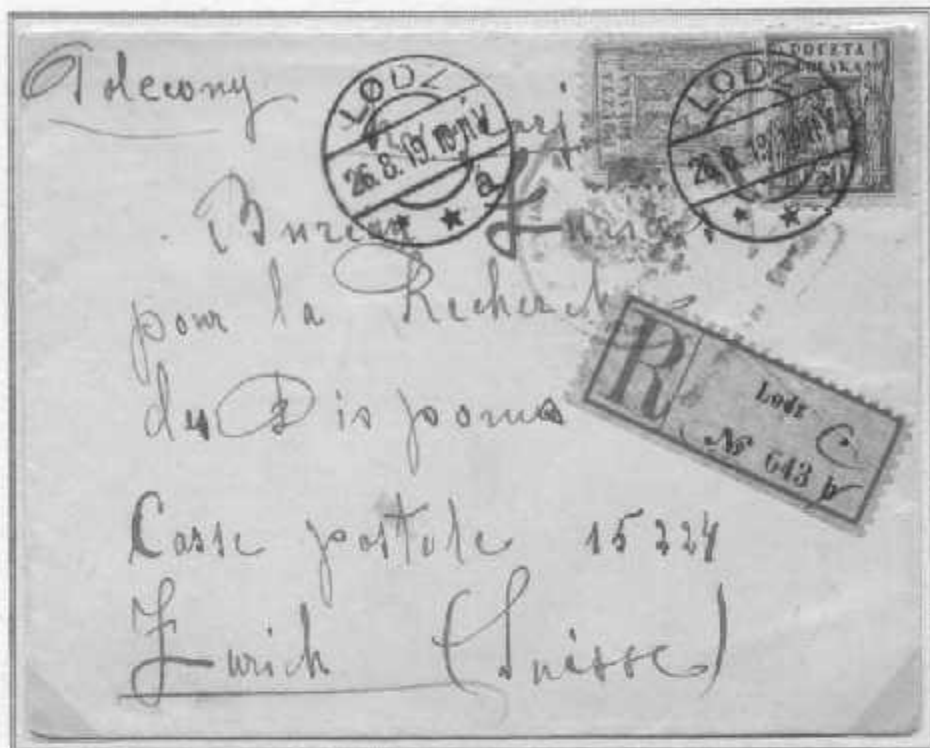 Polecony
LODZ
26.8.19.
a
* *
POCZTA
POLSKA
POCZTA
POLSKA
LODZ
26.8.19
a
* *
Bureau Zurich
pour la Recherche
des Disparus
R
Lodz
C
№ 643 b
Casse postale 15224
Zurich (Suisse)